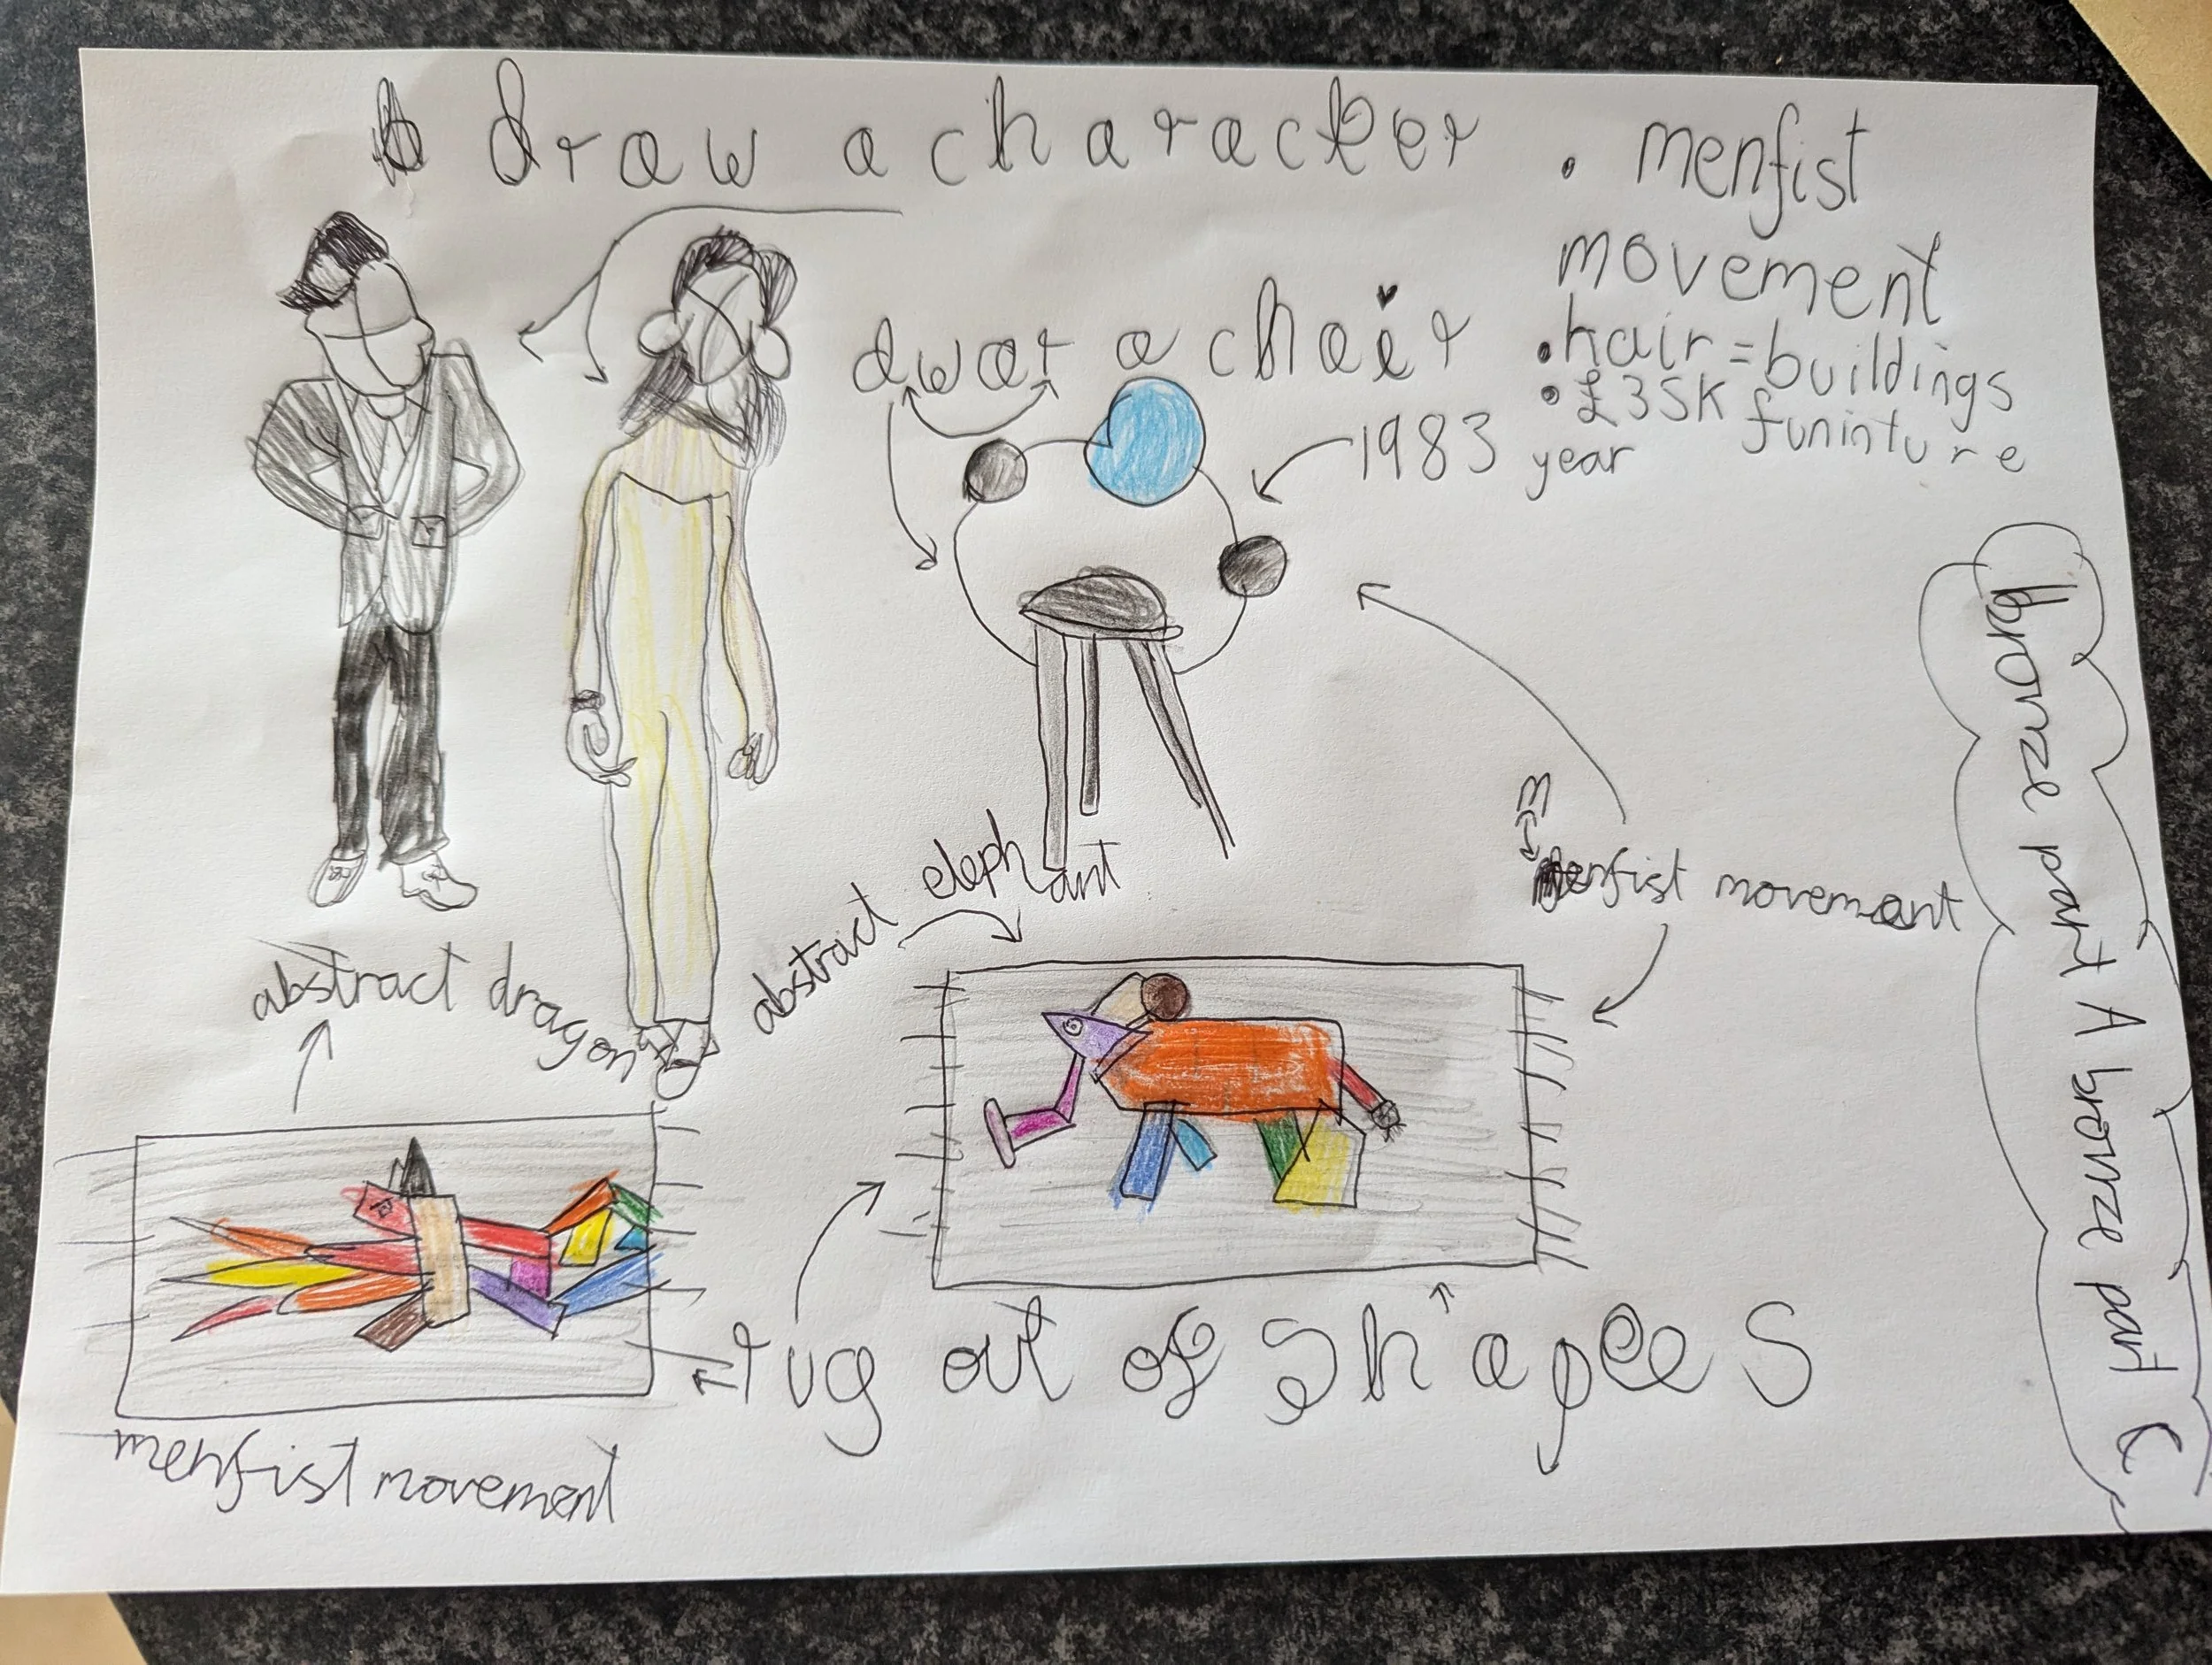 draw a character
• menfist
movement
• hair = buildings
• £35K funinture
year
dwar a chair
1983
abstract elephant
m
menfist movement
abstract dragon
rug out of shapes
menfist movement
bronze part A bronze part C